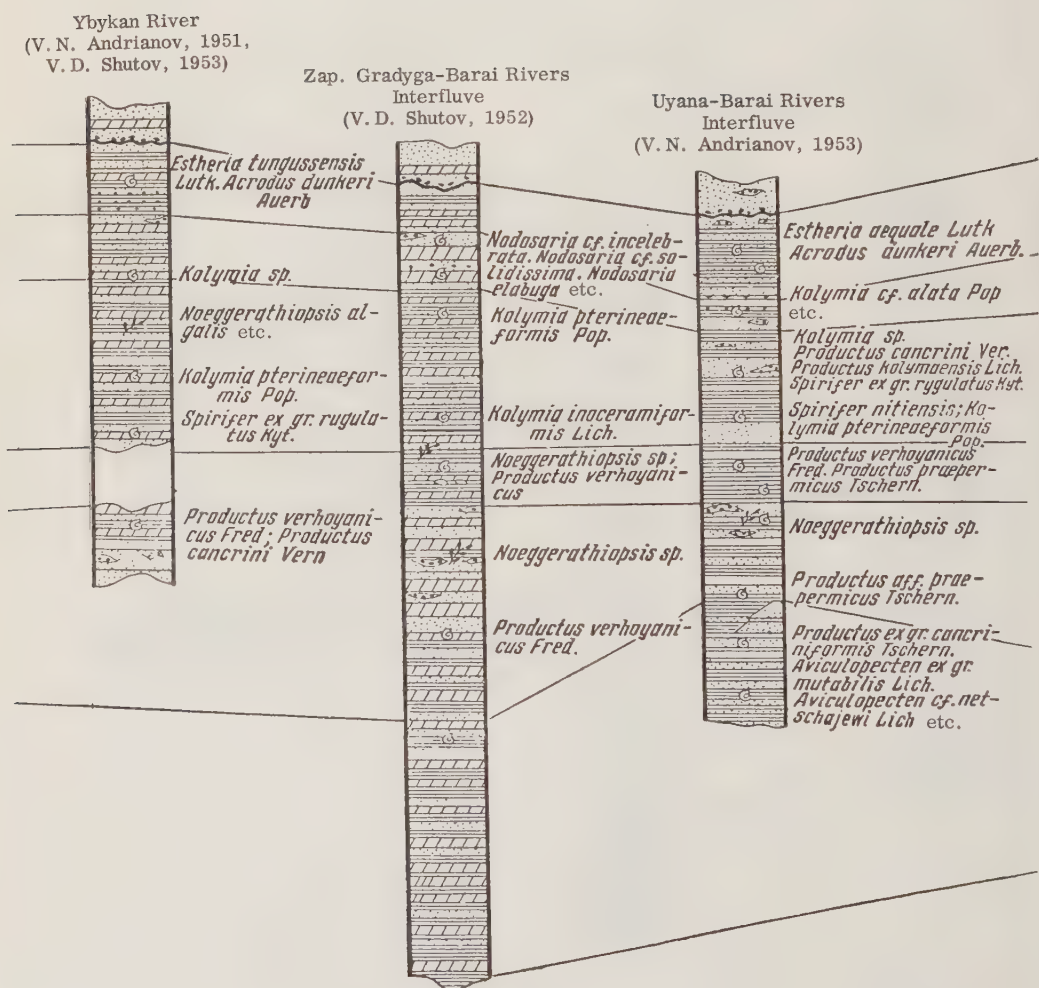 Ybykan River
(V. N. Andrianov, 1951,
V. D. Shutov, 1953)
Estheria tungussensis
Lutk. Acrodus dunkeri
Auerb
Kolymia sp.
Noeggerathiopsis al-
galis etc.
Kolymia pterineae-
formis Pop.
Spirifer ex gr. rugula-
tus Kyt.
Productus verhoyani-
cus Fred; Productus
cancrini Vern
Zap. Gradyga-Barai Rivers
Interfluve
(V. D. Shutov, 1952)
Nodosaria cf. inceleb-
rata. Nodosaria cf. so-
lidissima. Nodosaria
elabuga etc.
Kolymia pterineae-
formis Pop.
Kolymia inoceramifor-
mis Lich.
Noeggerathiopsis sp;
Productus verhoyani-
cus
Noeggerathiopsis sp.
Productus verhoyani-
cus Fred.
Uyana-Barai Rivers
Interfluve
(V. N. Andrianov, 1953)
Estheria aequale Lutk
Acrodus dunkeri Auerb.
Kolymia cf. alata Pop
etc.
Kolymia sp.
Productus cancrini Ver.
Productus kolymaensis Lich.
Spirifer ex gr. rygulatus Kyt.
Spirifer nitiensis; Ko-
lymia pterineaeformis
Pop.
Productus verhoyanicus
Fred. Productus praeper-
micus Tschern.
Noeggerathiopsis sp.
Productus aff. prae-
permicus Tschern.
Productus ex gr. cancri-
niformis Tschern.
Aviculopecten ex gr.
mutabilis Lich.
Aviculopecten cf. net-
schajewi Lich etc.